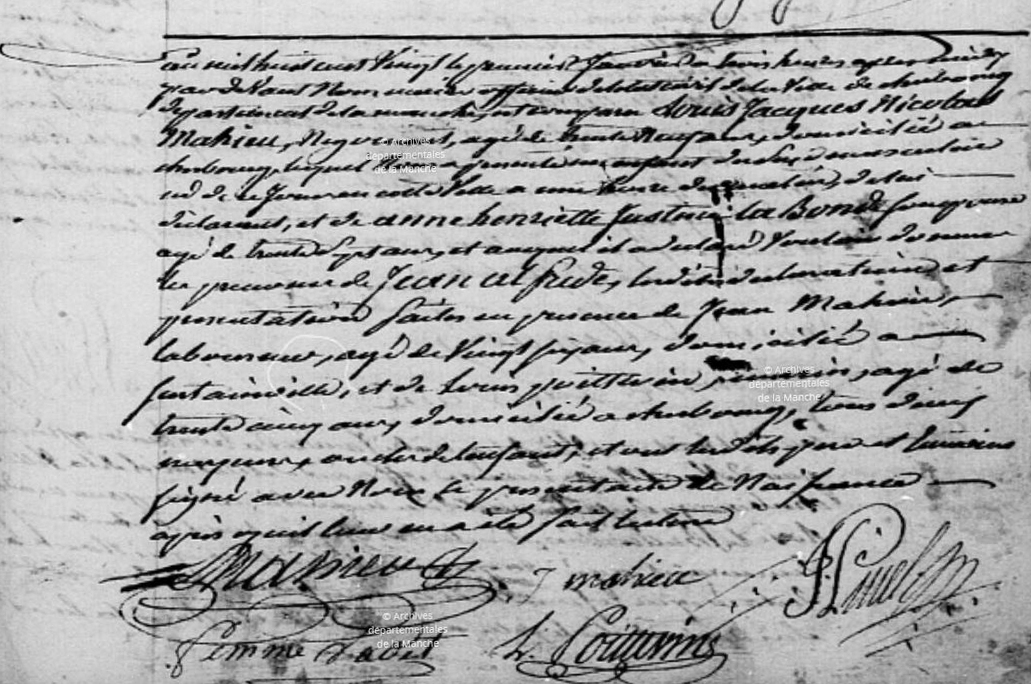 an mil huit cent Vingt le premier Janvier a trois heures apres midy
par devant Nous maire officier de l'état civil de la Ville de cherbourg
departement de la manche, est comparu Louis Jacques Nicolas
Mahieu, Negociant, agé de trente neuf ans, domicilié a
cherbourg, lequel Nous a presenté un enfant du sexe masculin
né de ce jour en cette Ville a une heure du matin, de lui
déclarant, et de anne henriette Justine La Bonde son epouse
agé de trente sept ans, et auquel il a déclaré Vouloir donner
les prenoms de Jean alfred, lesdites declaration et
presentation faites en presence de Jean Mahieu,
laboureur, agé de Vingt six ans, domicilié a
surtainville, et de Louis agé de
trente cinq ans, domicilié a cherbourg, tous deux
majeurs, oncles de l'enfant, et ont lesdits pere et temoins
signé avec Nous le present acte de Naissance
après qu'il leur en a été fait lecture
Mahieu J mahieu
femme L.
© Archives
départementales
de la Manche
© Archives
départementales
de la Manche
© Archives
départementales
de la Manche